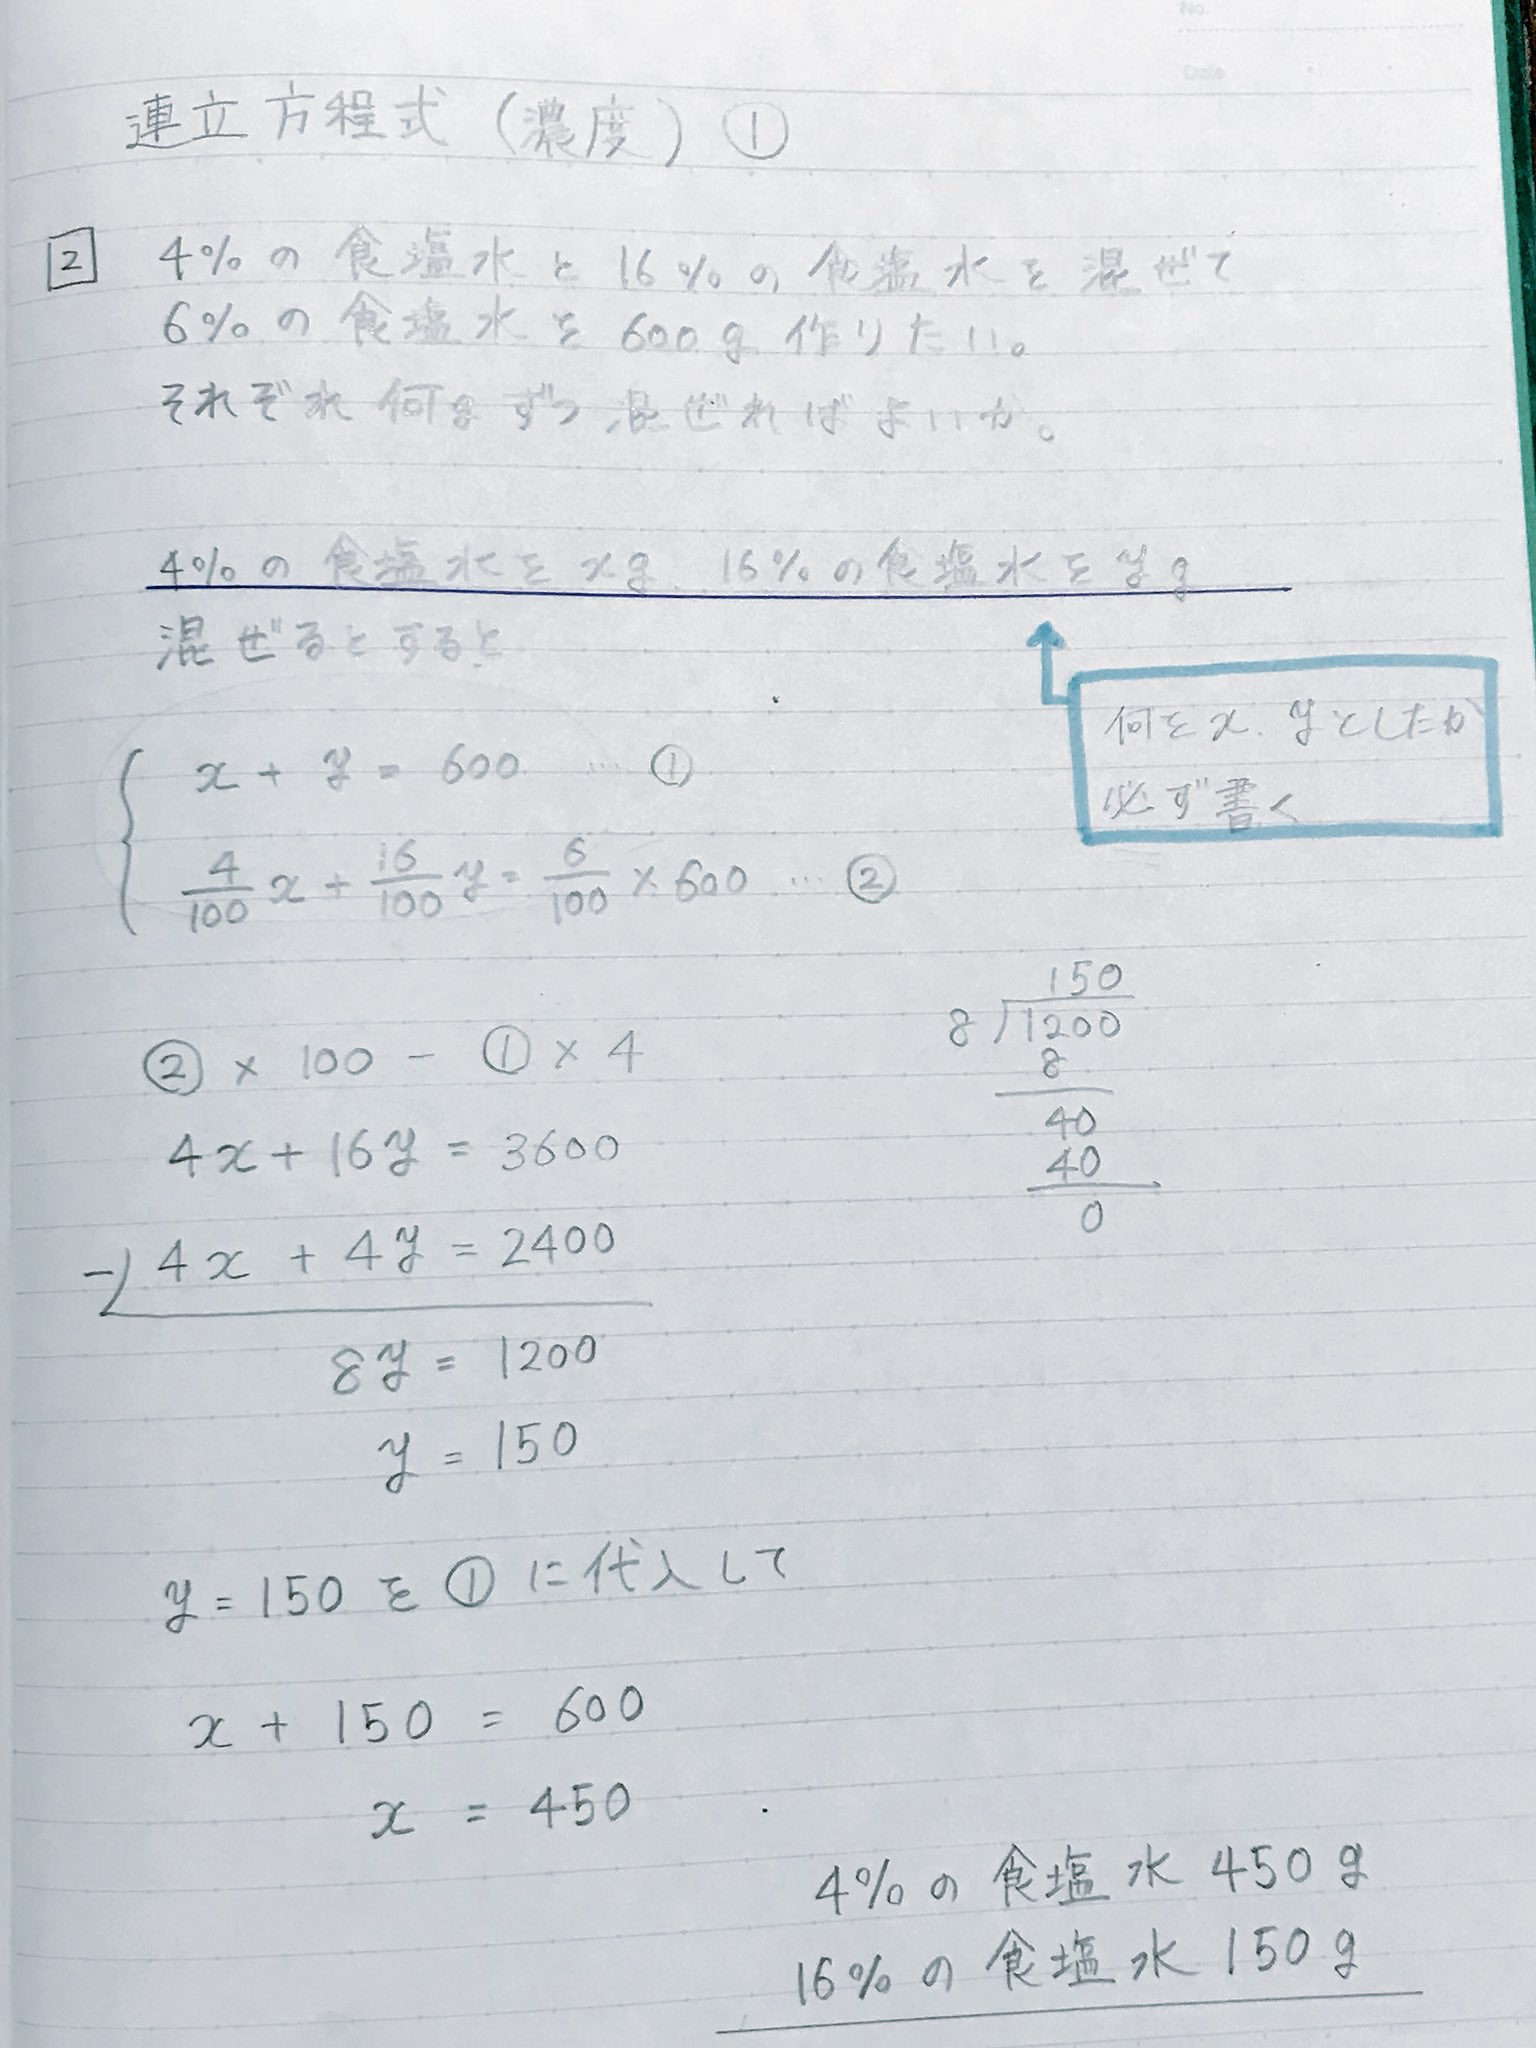 No.
Date
連立方程式（濃度）①
2 4%の食塩水と16%の食塩水を混ぜて
6%の食塩水を600g作りたい。
それぞれ何gずつ混ぜればよいか。
4%の食塩水をxg、16%の食塩水をyg
混ぜるとすると
何をx、yとしたか
必ず書く
x + y = 600 … ①
4/100 x + 16/100 y = 6/100 × 600 … ②
② × 100 - ① × 4
4x + 16y = 3600
-) 4x + 4y = 2400
8y = 1200
y = 150
150
8)1200
8
40
40
0
y = 150 を ① に代入して
x + 150 = 600
x = 450
4%の食塩水 450g
16%の食塩水 150g